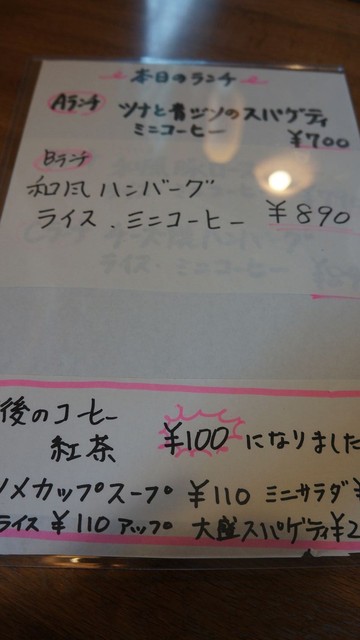 本日のランチ
Aランチ ツナと青ジソのスパゲティ
ミニコーヒー ¥700
Bランチ
和風ハンバーグ
ライス.ミニコーヒー ¥890
ライス.ミニコーヒー
後のコーヒー
紅茶 ¥100になりました
メカップスープ ¥110 ミニサラダ¥
ライス ¥110 アップ 大盛スパゲティ¥2